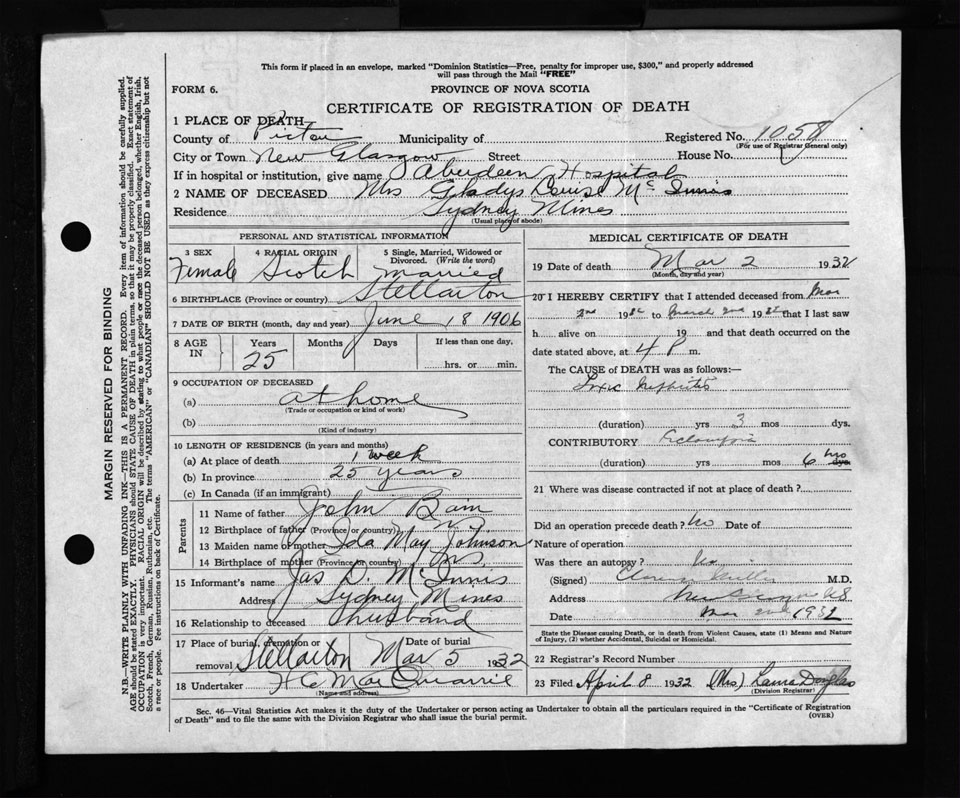 This form if placed in an envelope, marked "Dominion Statistics—Free, penalty for improper use, $300," and properly addressed
will pass through the Mail "FREE"
FORM 6.
PROVINCE OF NOVA SCOTIA
CERTIFICATE OF REGISTRATION OF DEATH
1 PLACE OF DEATH
County of Pictou Municipality of Registered No. 1058
(For use of Registrar General only)
City or Town New Glasgow Street House No.
If in hospital or institution, give name Aberdeen Hospital
2 NAME OF DECEASED Mrs Gladys Louise Mc Innis
Residence Sydney Mines
(Usual place of abode)
PERSONAL AND STATISTICAL INFORMATION
3 SEX 4 RACIAL ORIGIN 5 Single, Married, Widowed or
Divorced. (Write the word)
Female Scotch Married
6 BIRTHPLACE (Province or country) Stellarton
7 DATE OF BIRTH (month, day and year) June 18 1906
8 AGE IN Years Months Days If less than one day,
25 hrs. or min.
9 OCCUPATION OF DECEASED
(a) at home
(Trade or occupation or kind of work)
(b)
(Kind of industry)
10 LENGTH OF RESIDENCE (in years and months)
(a) At place of death 1 week
(b) In province 25 years
(c) In Canada (if an immigrant)
Parents
11 Name of father John Bain
12 Birthplace of father (Province or country) N.S.
13 Maiden name of mother Ida May Johnson
14 Birthplace of mother (Province or country) N.S.
15 Informant's name Jas D. McInnis
Address Sydney Mines
16 Relationship to deceased husband
17 Place of burial, cremation or removal Stellarton Date of burial Mar 5 1932
18 Undertaker H C MacQuarrie
(Name and address)
MEDICAL CERTIFICATE OF DEATH
19 Date of death Mar 2 1932
(Month, day and year)
20 I HEREBY CERTIFY that I attended deceased from Mar
2nd 1932 to March 2nd 1932 that I last saw
h alive on 19 and that death occurred on the
date stated above, at 4 P m.
The CAUSE of DEATH was as follows:—
Toxic Nephritis
(duration) yrs 3 mos dys.
CONTRIBUTORY Eclampsia
(duration) yrs mos 6 hrs dys.
21 Where was disease contracted if not at place of death?
Did an operation precede death? no Date of
Nature of operation
Was there an autopsy? no
(Signed) M.D.
Address New Glasgow NS
Date Mar 2nd 1932
State the Disease causing Death, or in death from Violent Causes, state (1) Means and Nature
of Injury, (2) whether Accidental, Suicidal or Homicidal.
22 Registrar's Record Number
23 Filed April 8 1932 (Mrs) Laura Douglas
(Division Registrar)
Sec. 46—Vital Statistics Act makes it the duty of the Undertaker or person acting as Undertaker to obtain all the particulars required in the "Certificate of Registration
of Death" and to file the same with the Division Registrar who shall issue the burial permit.
(OVER)
MARGIN RESERVED FOR BINDING
N.B.—WRITE PLAINLY WITH UNFADING INK—THIS IS A PERMANENT RECORD. Every item of information should be carefully supplied.
AGE should be stated EXACTLY. PHYSICIANS should STATE CAUSE OF DEATH in plain terms, so that it may be properly classified. Exact statement of
OCCUPATION is very important. RACIAL ORIGIN will be described by stating to what people or race the deceased person belonged, whether English, Irish,
Scotch, French, German, Russian, Ruthenian, etc. The terms "AMERICAN" or "CANADIAN" SHOULD NOT BE USED as they express citizenship but not
a race or people. See instructions on back of Certificate.